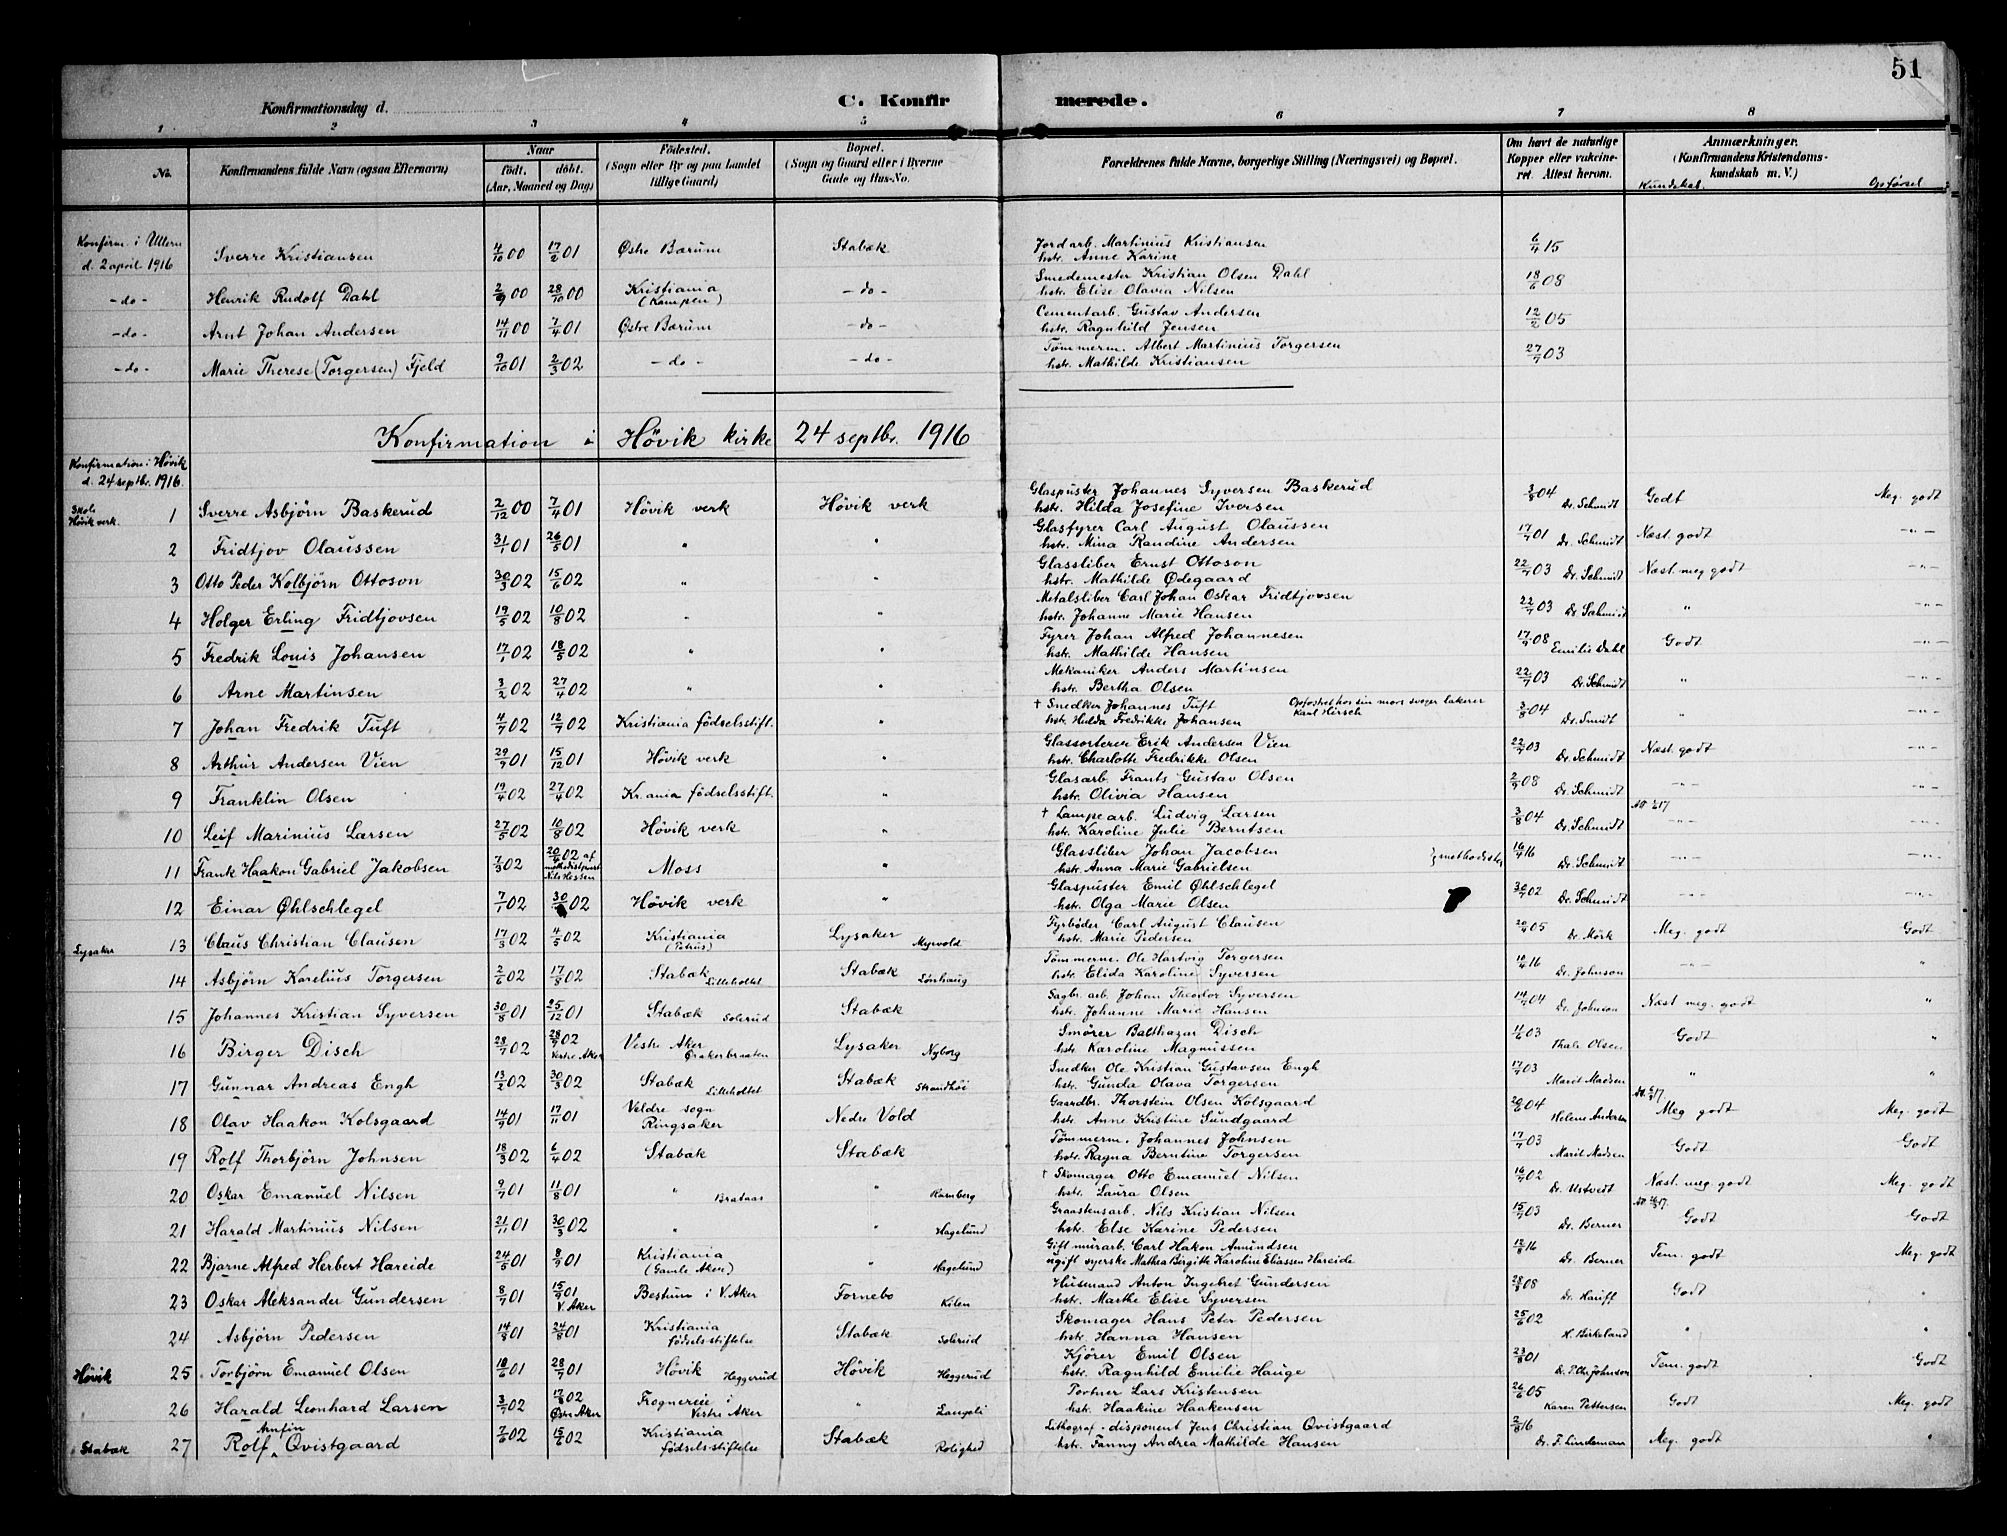 51
Konfirmationsdag d. C. Konfirmerede.
1 2 3 4 5 6 7 8
No. Konfirmandens fulde Navn (ogsaa Efternavn) Naar født. døbt. (Aar, Maaned og Dag) Fødested. (Sogn eller By og paa Landet tillige Gaard) Bopæl. (Sogn og Gaard eller i Byerne Gade og Hus-No. Forældrenes fulde Navne, borgerlige Stilling (Næringsvei) og Bopæl. Om havt de naturlige Kopper eller vakcineret. Attest herom. Anmærkninger. (Konfirmandens Kristendomskundskab m. V.)
Kundskab. Opførsel
Konfirm. i Ullern d. 2 april 1916 Sverre Kristiansen 4/10 00 17/2 01 Østre Bærum Stabæk Jordarb. Martinius Kristiansen 6/4 15
hstr. Anne Karine
-do- Henrik Rudolf Dahl 2/9 00 28/10 00 Kristiania (Kampen) -do- Smedemester Kristian Olsen Dahl 18/6 08
hstr. Elise Olavia Nilsen
-do- Arnt Johan Andersen 14/11 00 7/4 01 Østre Bærum -do- Cementarb. Gustav Andersen 12/2 05
hstr. Ragnhild Jensen
-do- Marie Therese (Torgersen) Fjeld 9/10 01 2/3 02 -do- -do- Tømmerm. Albert Martinius Torgersen 27/7 03
hstr. Mathilde Kristiansen
Konfirmation i Høvik kirke 24 septbr. 1916
Konfirmation i Høvik d. 24 septbr. 1916.
Skole Høvik verk. 1 Sverre Asbjörn Baskerud 2/12 00 7/4 01 Høvik verk Høvik verk Glaspuster Johannes Syversen Baskerud 3/8 04 Dr. Schmidt Godt Meg. godt
hstr. Hilda Josefine Iversen
2 Fridtjov Olaussen 31/1 01 26/5 01 " " Glasfyrer Carl August Olaussen 17/9 01 Dr. Schmidt Næst. godt -"-
hstr. Mina Randine Andersen
3 Otto Peder Kolbjörn Ottoson 30/3 02 15/6 02 " " Glassliber Ernst Ottoson 22/7 03 Dr. Schmidt Næst. meg godt -"-
hstr. Mathilde Ødegaard
4 Holger Erling Fridtjovsen 19/5 02 10/8 02 " " Metalsliber Carl Johan Oskar Fridtjovsen 22/7 03 Dr. Schmidt " -"-
hstr. Johanne Marie Hansen
5 Fredrik Louis Johansen 17/1 02 18/5 02 " " Fyrer Johan Alfred Johannesen 17/9 08 Emilie Dahl Godt -"-
hstr. Mathilde Hansen
6 Arne Martinsen 3/2 02 27/4 02 " " Mekaniker Anders Martinsen 22/7 03 Dr. Schmidt " -"-
hstr. Bertha Olsen
7 Johan Fredrik Tuft 4/7 02 12/7 02 Kristiania födselsstift. " † Snedker Johannes Tuft Opfostret hos sin mors svoger lakerer Karl Hirsch 3/8 04 Dr. Smidt " -"-
hstr. Hilda Fredrikke Johansen
8 Arthur Andersen Vien 29/9 01 15/12 01 Høvik verk " Glassorterer Erik Andersen Vien 22/7 03 Dr. Schmidt Næst. godt -"-
hstr. Charlotte Fredrikke Olsen
9 Franklin Olsen 19/4 02 27/4 02 Kr.ania födselsstift. " Glasarb. Frants Gustav Olsen 2/9 08 Dr. Schmidt -"- -"-
hstr. Olivia Hansen
10 Leif Marinius Larsen 27/5 02 10/8 02 Høvik verk " † Lampearb. Ludvig Larsen 3/8 04 Dr. Schmidt -"- -"-
hstr. Karoline Julie Berntsen
11 Frank Haakon Gabriel Jakobsen 7/3 02 20/6 02 af methodistprest Nils Hessen Moss " Glassliber Johan Jacobsen } methodister 16/4 16 Dr. Schmidt -"- -"-
hstr. Anna Marie Gabrielsen
12 Einar Øhlschlegel 7/1 02 30/ 02 Høvik verk " Glaspuster Emil Øhlschlegel 30/7 02 Dr. Schmidt -"- -"-
hstr. Olga Marie Olsen
Lysaker 13 Claus Christian Clausen 17/3 02 4/5 02 Kristiania (Petrus) Lysaker Myrvold Fyrbøder Carl August Clausen 20/9 05 Dr. Mörk Meg. godt Godt
hstr. Marie Pedersen
14 Asbjörn Karelius Torgersen 2/6 02 17/8 02 Stabæk Lilleholtet Stabæk Lønhaug Tømmerm. Ole Hartvig Torgersen 10/4 16 Dr. Johnson -"- "
hstr. Elida Karoline Syversen
15 Johannes Kristian Syversen 30/8 01 25/12 01 Stabæk Solerud Stabæk Sagbr. arb. Johan Theodor Syversen 14/9 04 Dr. Johnson Næst meg. godt "
hstr. Johanne Marie Hansen
16 Birger Disch 28/7 02 28/9 02 Vestre Aker Vestre Aker Ørakerbraaten Lysaker Nyborg Smører Balthazar Disch 4/6 03 Thale Olsen Godt "
hstr. Karoline Magnussen
17 Gunnar Andreas Engh 13/2 02 30/3 02 Stabæk Lilleholtet Stabæk Strandhöi Snedker Ole Kristian Gustavsen Engh 17/7 03 Marit Madsen " "
hstr. Gunda Olava Torgersen
18 Olav Haakon Kolsgaard 14/9 01 17/11 01 Veldre sogn Ringsaker Nedre Vold Gaardbr. Thorstein Olsen Kolsgaard 20/6 04 Helene Andersen Meg godt Meg. godt
hstr. Anne Kristine Sundgaard
19 Rolf Thorbjörn Johnsen 18/3 02 6/4 02 Stabæk Stabæk Tømmerm. Johannes Johnsen 17/7 03 Marit Madsen Godt Godt
hstr. Ragna Berntine Torgersen
20 Oskar Emanuel Nilsen 9/7 01 11/8 01 " Brataas " Ramberg † Skomager Otto Emanuel Nilsen 16/7 02 Dr. Ustvedt Næst. meg godt Meg. godt
hstr. Laura Olsen
21 Harald Martinius Nilsen 21/11 01 30/3 02 " " Hagelund Graastensarb. Nils Kristian Nilsen 15/7 03 Dr. Berner Godt Godt
hstr. Else Karine Pedersen
22 Bjarne Alfred Herbert Hareide 24/5 01 8/9 01 Kristiania (Gamle Aker) " Hagelund Gift murarb. Carl Hakon Amundsen 12/8 16 Dr. Berner Tem. godt Meg. godt
ugift syerske Mathea Birgitte Karoline Eliassen Hareide
23 Oskar Aleksander Gundersen 8/7 01 15/9 01 V. Aker Bestum i V. Aker Fornebo Kilen Husmand Anton Ingebret Gundersen 28/8 08 Dr. Hauff Godt "
hstr. Marthe Elise Syversen
24 Asbjörn Pedersen 14/8 01 24/8 01 Kristiania födselsstiftelse Stabæk Solerud Skomager Hans Peter Pedersen 25/6 02 H. Birkeland " "
hstr. Hanna Hansen
Høvik 25 Torbjörn Emanuel Olsen 18/6 01 28/7 01 Høvik Heggerud Høvik Heggerud Kjører Emil Olsen 23/8 01 Dr. P. Chr. Johnson Tem. godt Godt
hstr. Ragnhild Emilie Hauge
26 Harald Leonhard Larsen 3/7 02 17/8 02 Østre Aker Frognerei i Vestre Aker " Langeli Portner Lars Kristensen 26/6 05 Karen Pettersen Godt Meg. godt
hstr. Haakine Haakensen
Stabæk 27 Rolf Arnfin Qvistgaard 7/6 02 15/6 02 Kristiania födselsstiftelse Stabæk Rolighed Lithograf-disponent Jens Christian Qvistgaard 2/8 16 Dr. F. Lindeman Meg. godt "
hstr. Fanny Andrea Mathilde Hansen